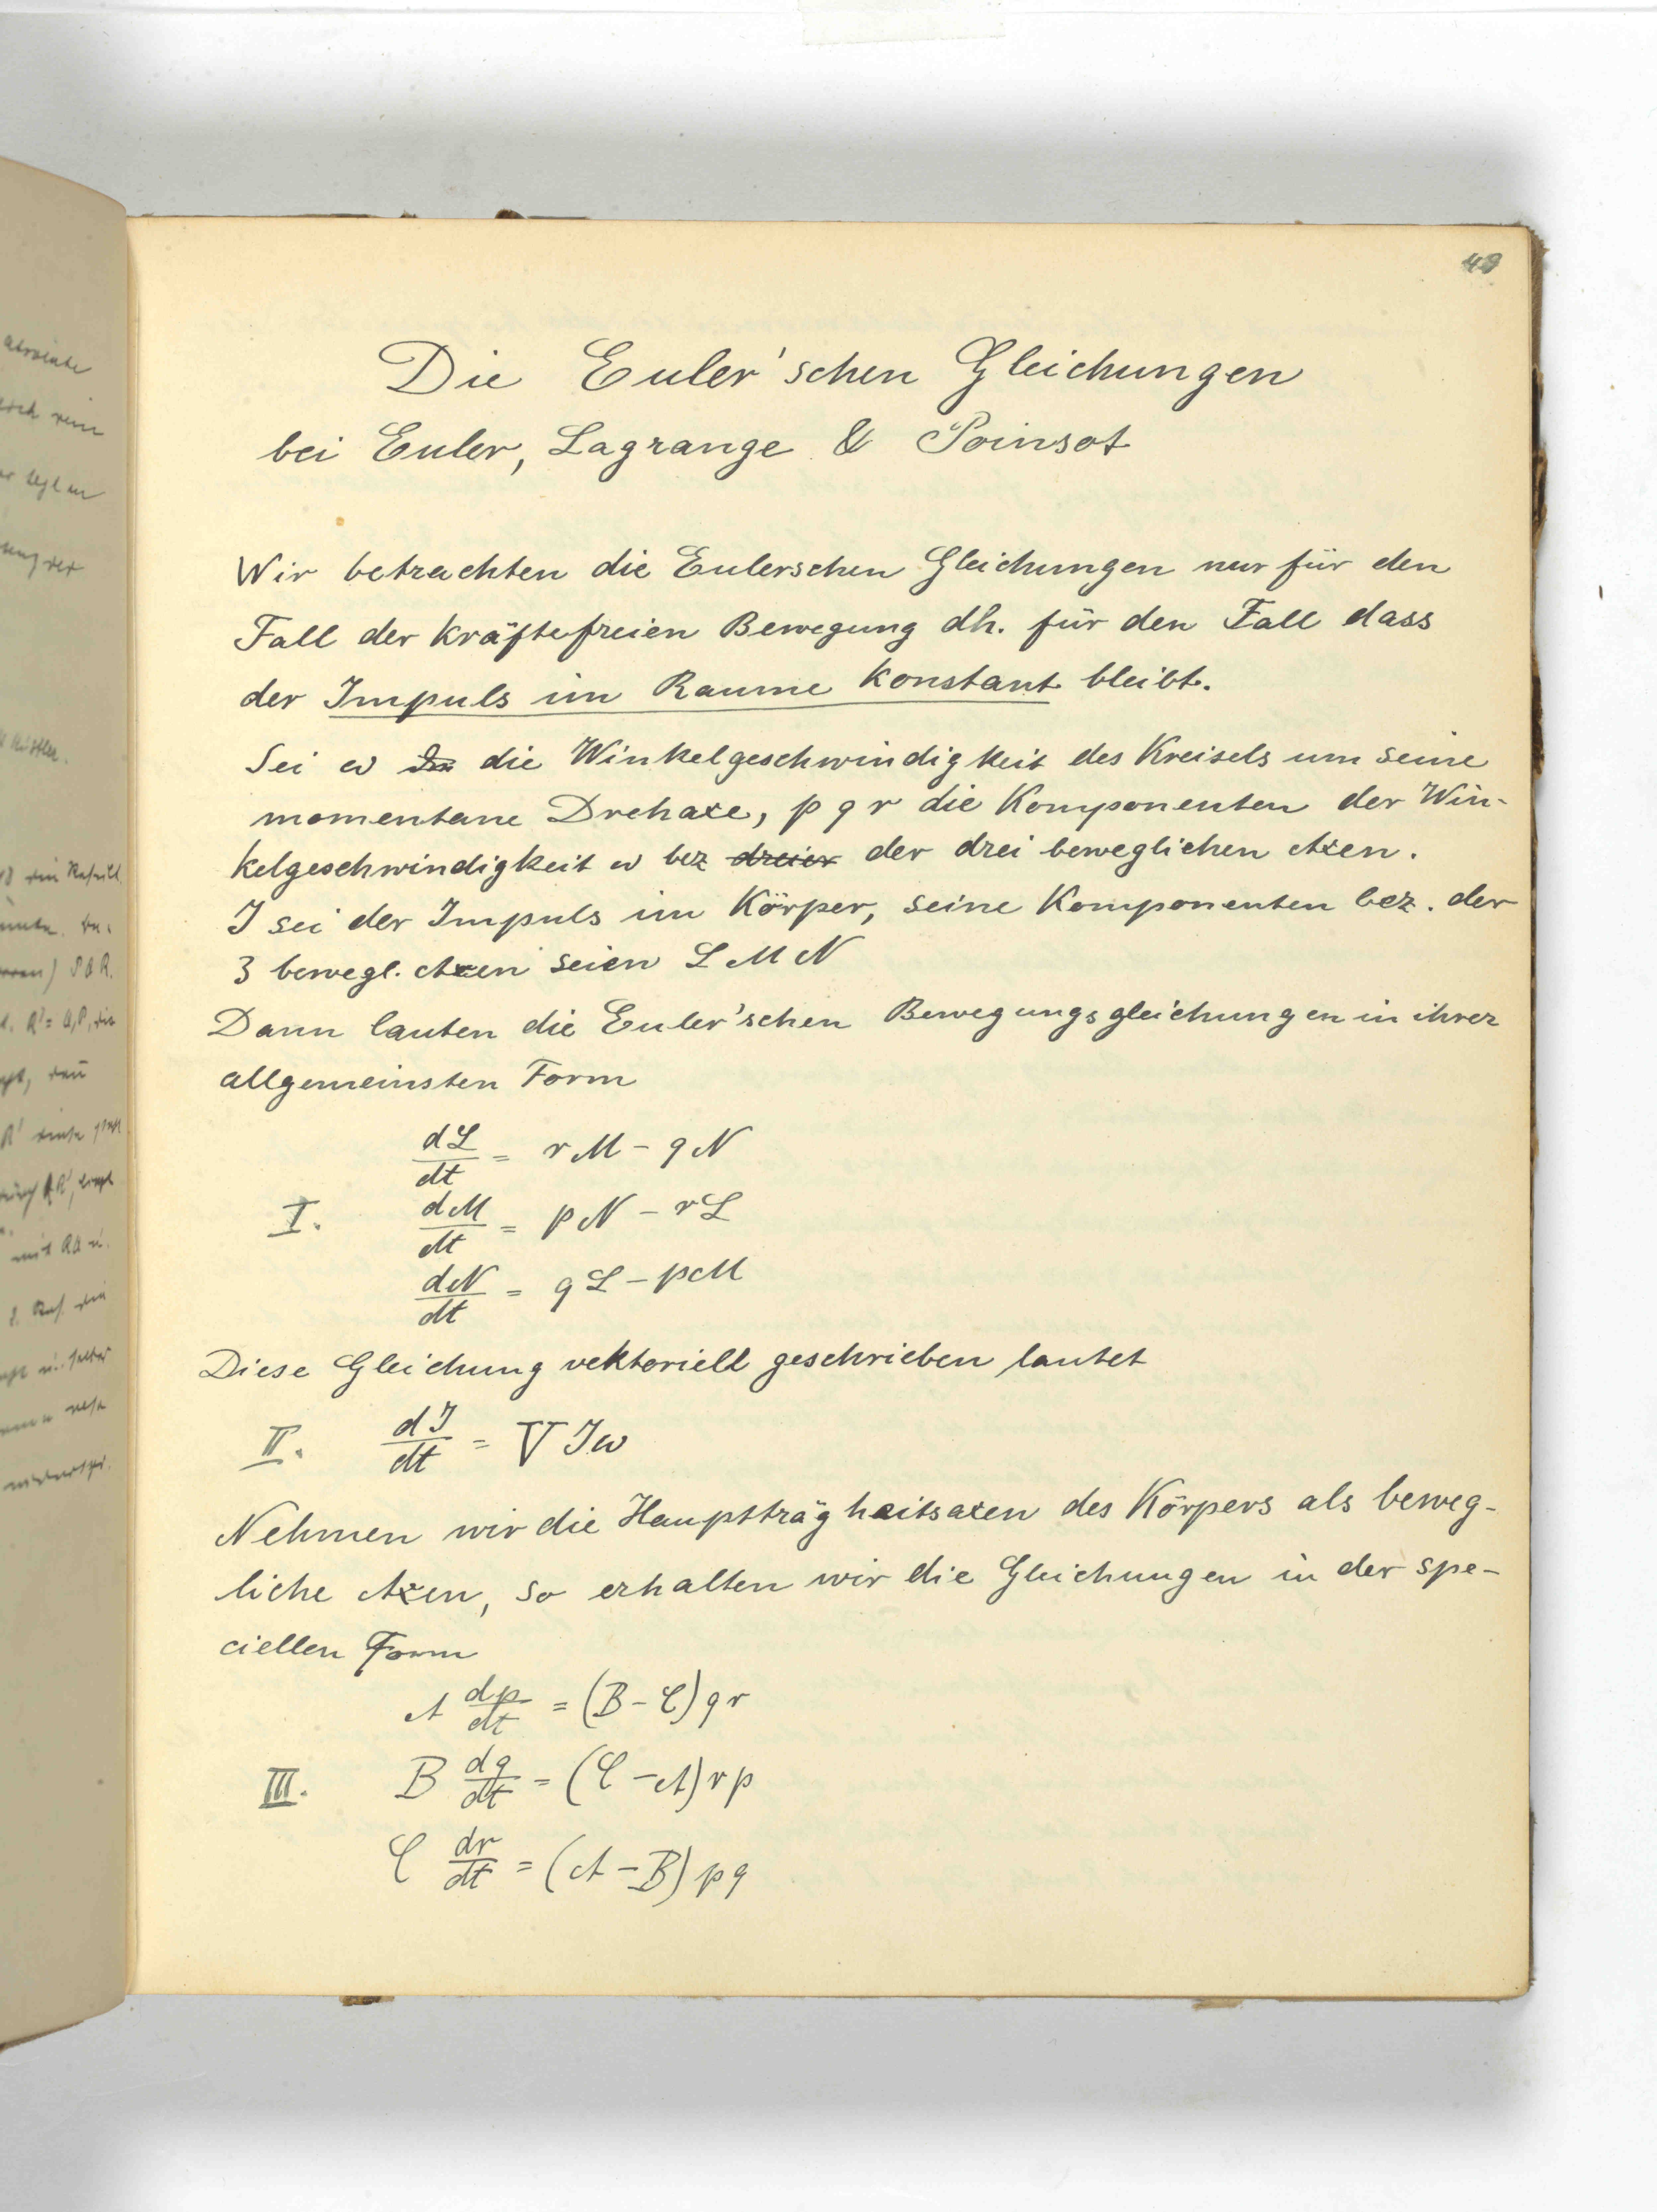 49
Die Euler'schen Gleichungen
bei Euler, Lagrange & Poinsot
Wir betrachten die Eulerschen Gleichungen nur für den
Fall der Kräftefreien Bewegung dh. für den Fall dass
der Impuls im Raume Konstant bleibt.
Sei ω die Winkelgeschwindigkeit des Kreisels um seine
momentane Drehaxe, p q r die Komponenten der Win-
kelgeschwindigkeit ω bez dreier der drei beweglichen Axen.
J sei der Impuls im Körper, seine Komponenten bez. der
3 bewegl. Axen seien L M N
Dann lauten die Euler'schen Bewegungsgleichungen in ihrer
allgemeinsten Form
dL/dt = rM - qN
I. dM/dt = pN - rL
dN/dt = qL - pM
Diese Gleichung vektoriell geschrieben lautet
II. dJ/dt = V Jω
Nehmen wir die Hauptträgheitsaxen des Körpers als beweg-
liche Axen, so erhalten wir die Gleichungen in der spe-
ciellen Form
A dp/dt = (B - C) q r
III. B dq/dt = (C - A) r p
C dr/dt = (A - B) p q